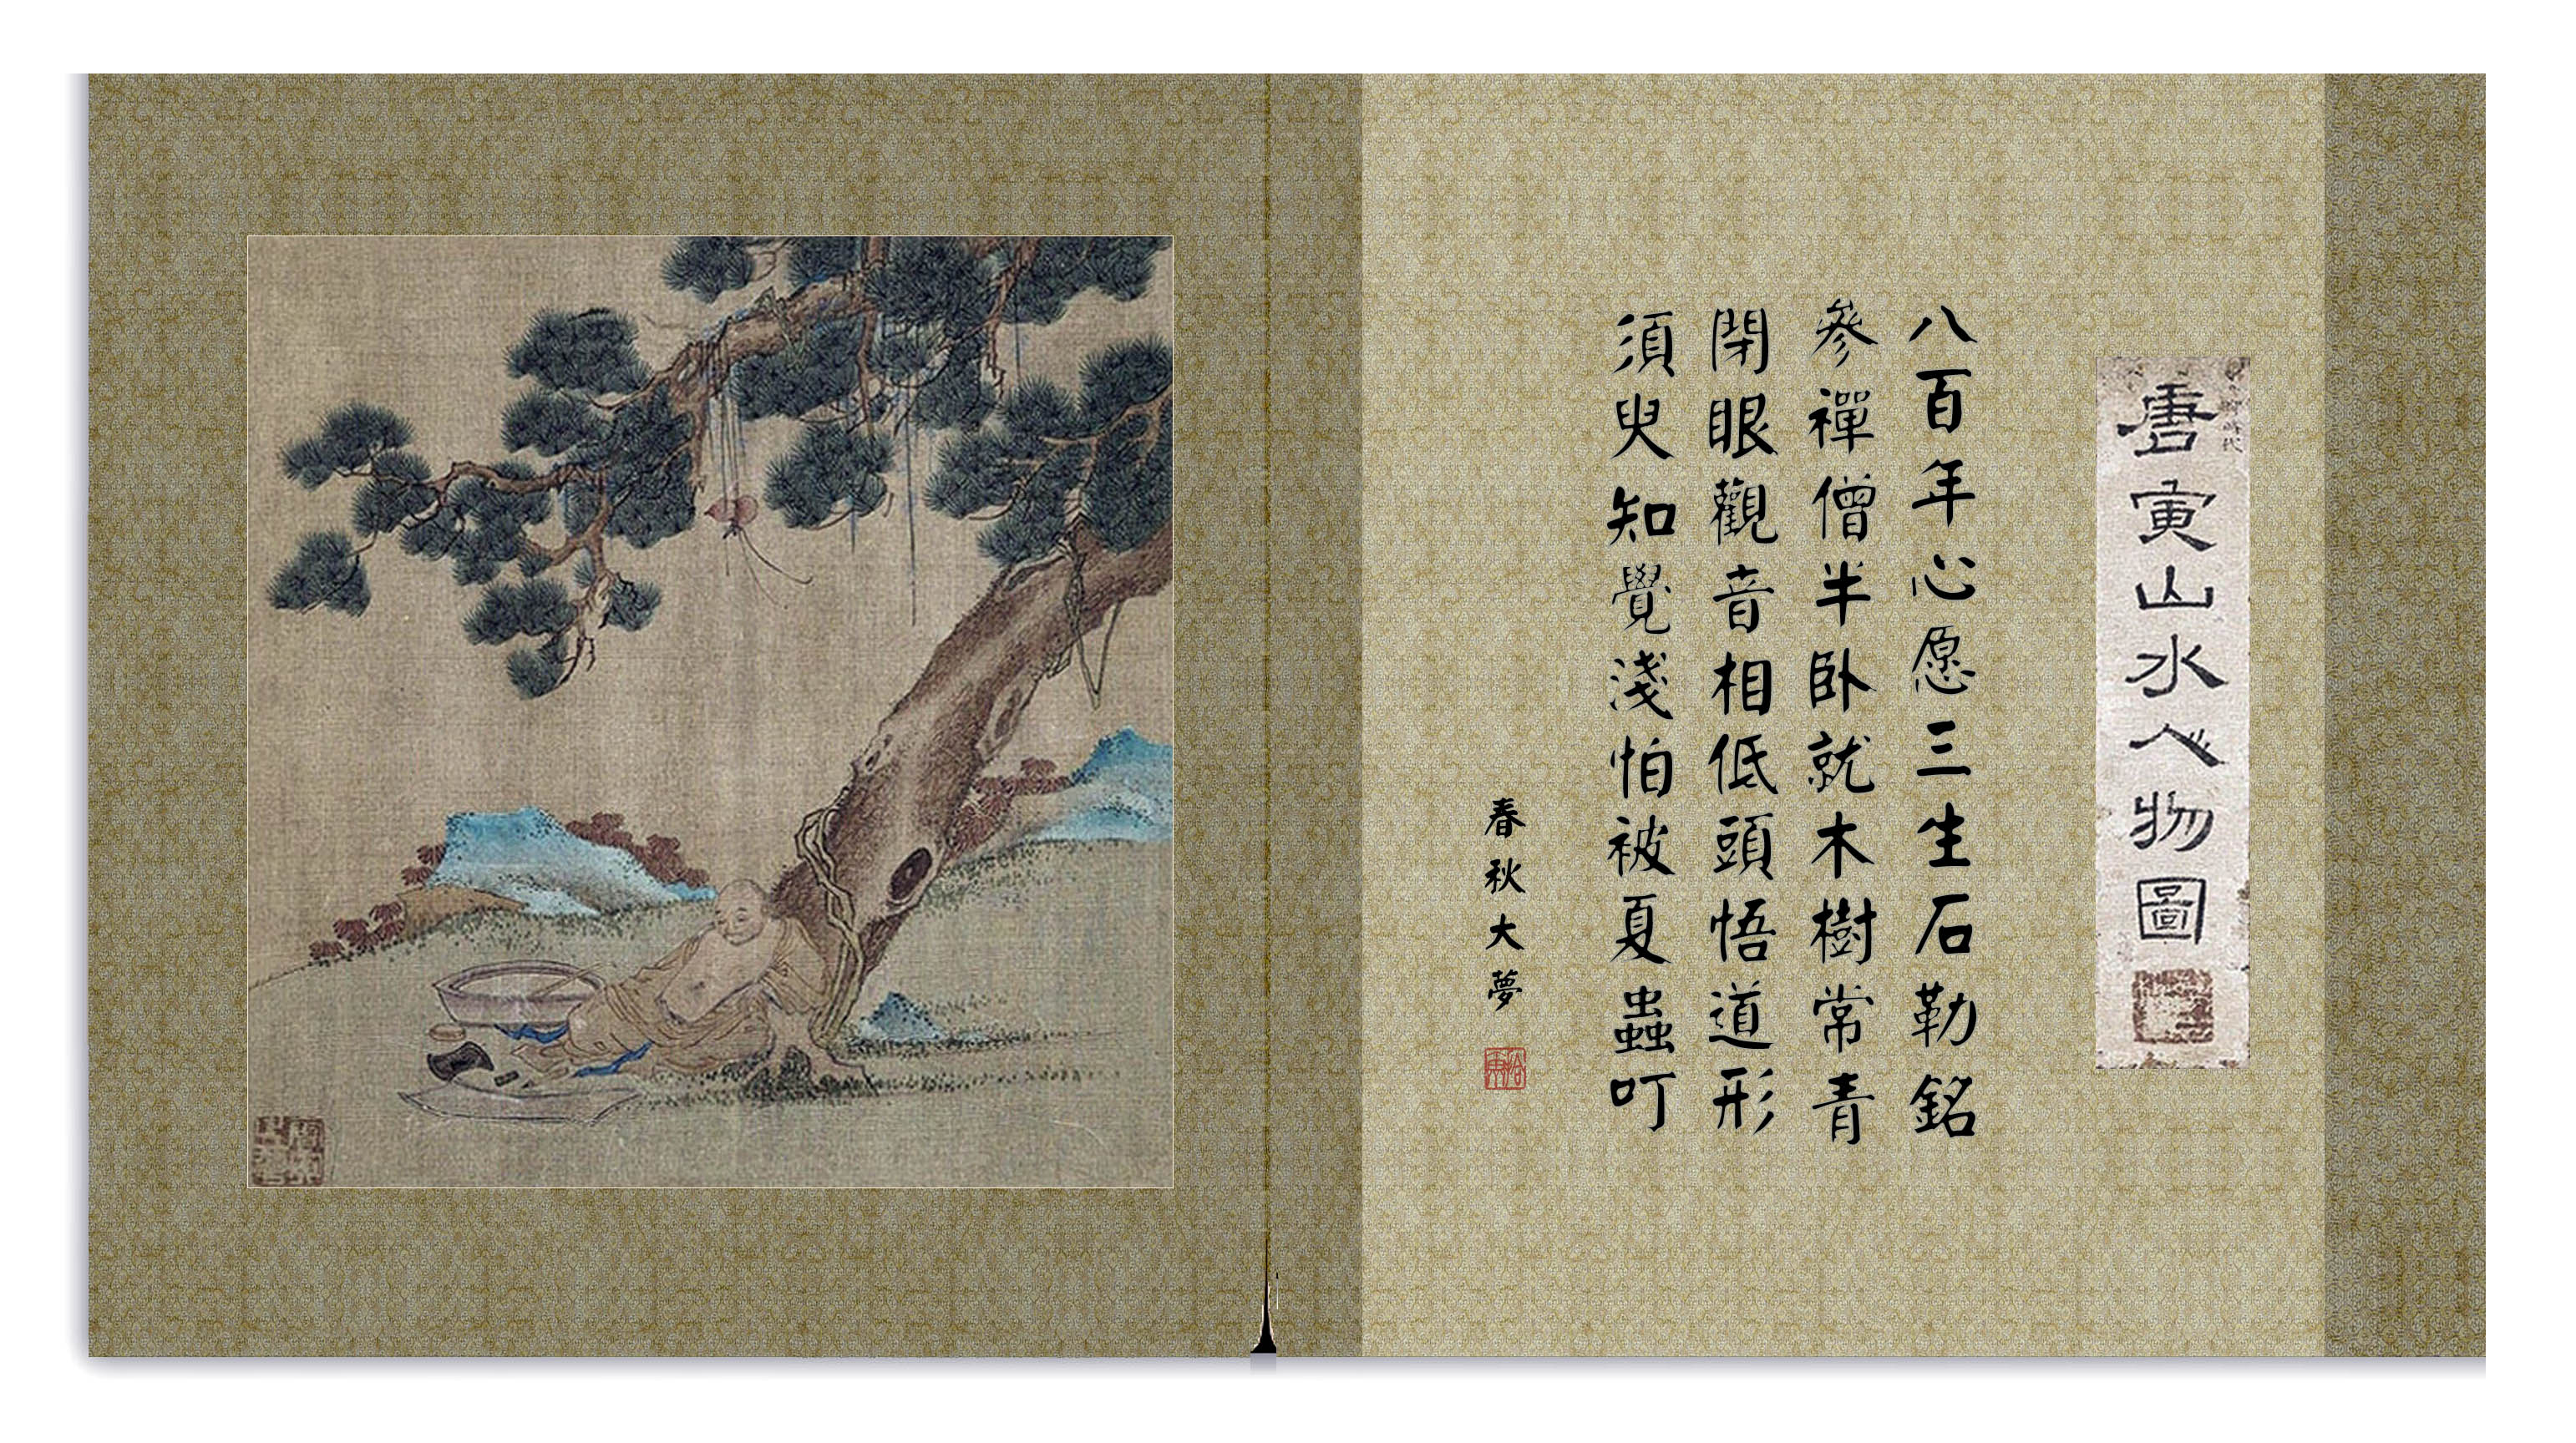 唐寅山水人物圖
八百年心愿三生石勒銘
參禪僧半卧就木樹常青
閉眼觀音相低頭悟道形
須臾知覺淺怕被夏蟲叮
春秋大夢